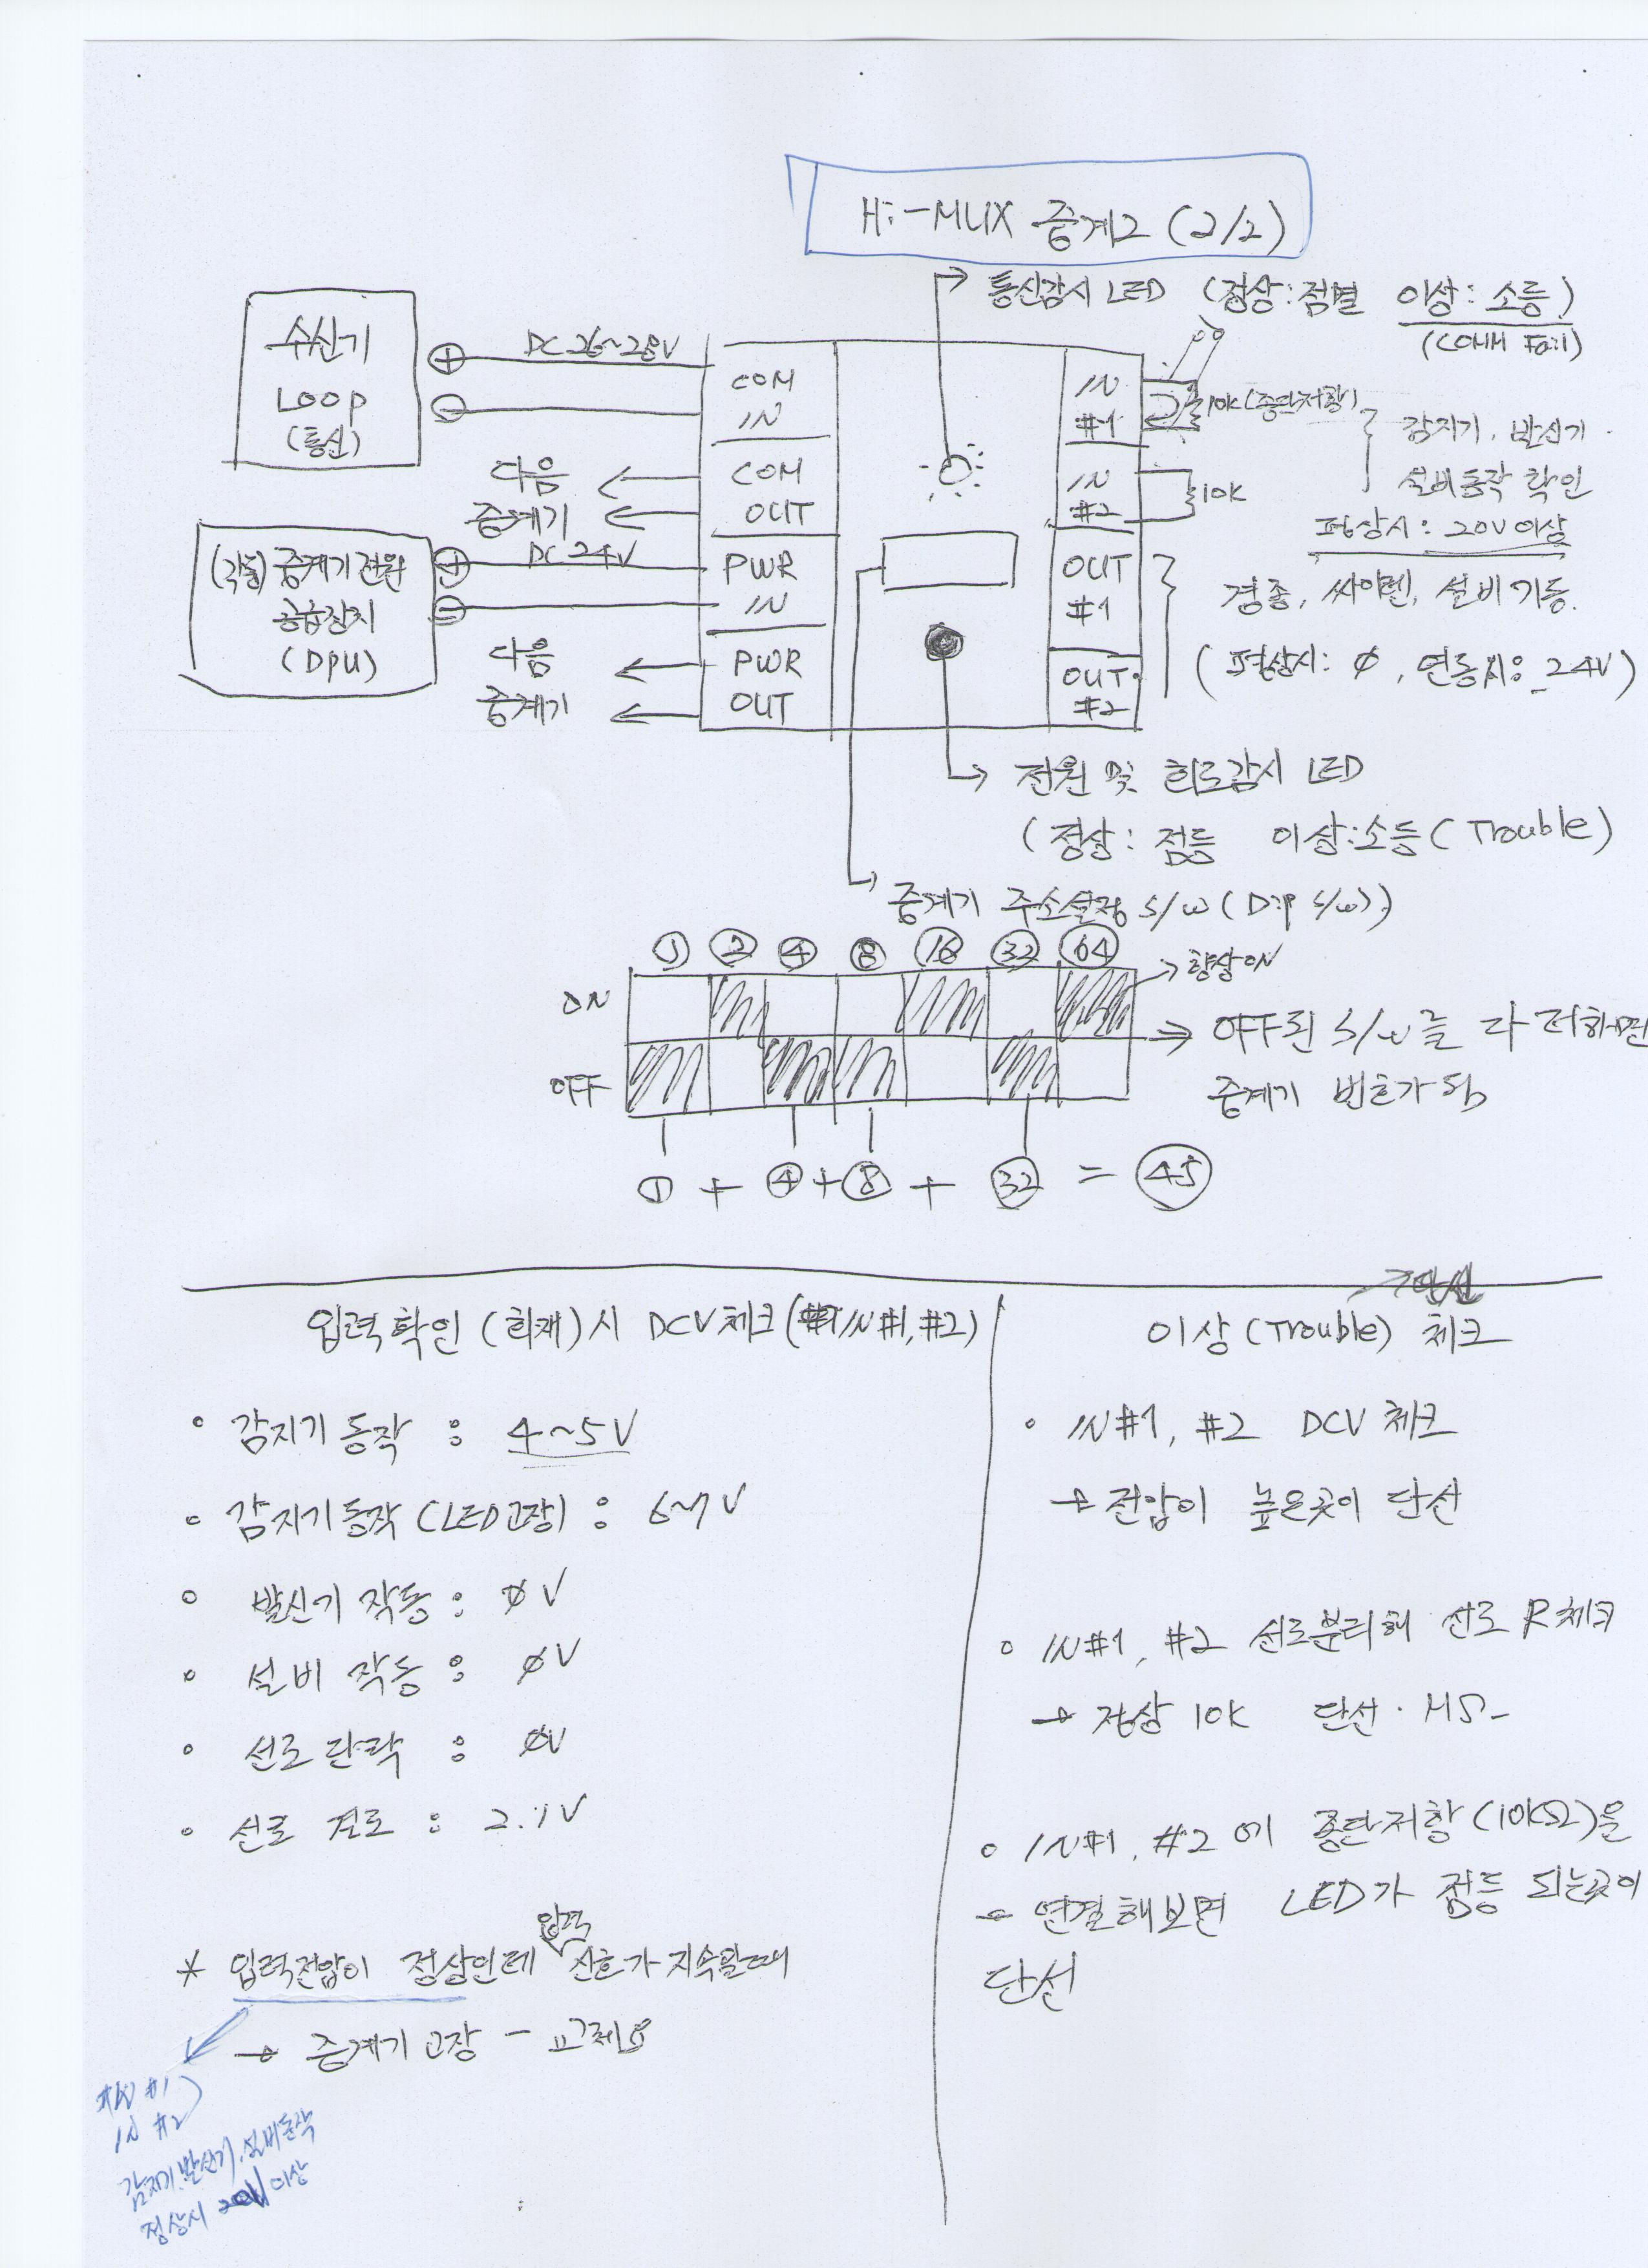 Hi-MUX 중계2 (2/2)
통신감시 LED (정상:점멸 이상:소등)
(COMM Fail)
수신기
LOOP
(통신)
⊕ DC 26~28V
⊖
COM
IN
다음
중계기
COM
OUT
(각동) 중계기 전원
공급장치
(DPU)
⊕ DC 24V
⊖
PWR
IN
다음
중계기
PWR
OUT
IN
#1
10K (종단저항)
IN
#2
10K
감지기, 발신기
설비동작 확인
평상시: 20V이상
OUT
#1
OUT
#2
경종, 싸이렌, 설비기동.
(평상시: ∅, 연동시: 24V)
전원 및 회로감시 LED
(정상: 점등 이상:소등 (Trouble)
중계기 주소설정 S/W (Dip S/W)
① ② ④ ⑧ ⑯ ㉜ 64
ON
항상ON
OFF
OFF된 S/W를 다 더하면
중계기 번호가 됨
① + ④ + ⑧ + ㉜ = ㊺
입력확인 (화재)시 DCV체크 (IN#1, #2)
• 감지기 동작 : 4~5V
• 감지기동작 (LED고장) : 6~7V
• 발신기 작동 : ∅V
• 설비 작동 : ∅V
• 선로 단락 : ∅V
• 선로 결로 : 2.1V
* 입력전압이 정상인데 입력 신호가 지속될때
→ 중계기 고장 - 교체요
IN #1
IN #2
감지기, 발신기, 설비동작
정상시 20V 이상
단선
이상 (Trouble) 체크
• IN#1, #2 DCV 체크
→ 전압이 높은곳이 단선
• IN#1, #2 선로분리해 선로 R체크
→ 정상 10K 단선 · MΩ
• IN#1, #2 에 종단저항 (10KΩ)을
→ 연결해보면 LED가 점등 되는곳이
단선